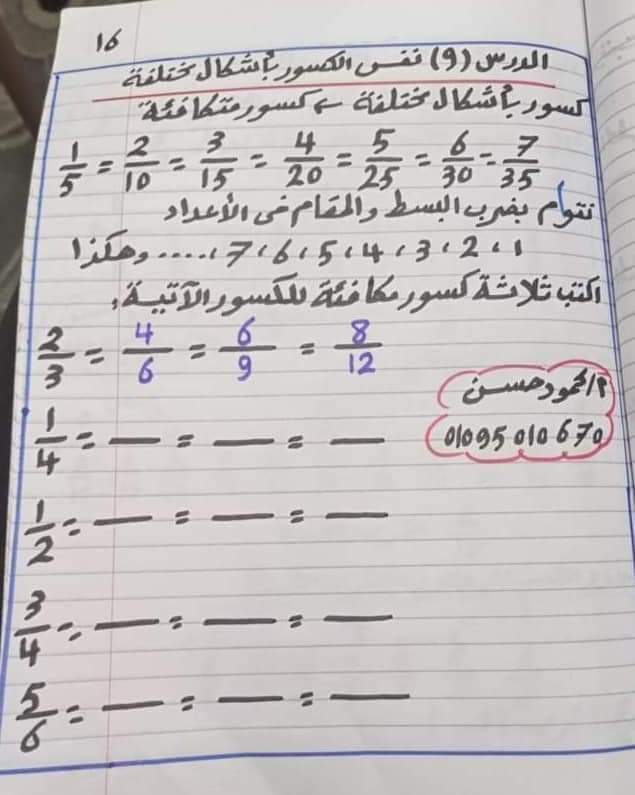 16
الدرس (9) نفس الكسور بأشكال مختلفة
كسور بأشكال مختلفة ← كسور متكافئة
1/5 = 2/10 = 3/15 = 4/20 = 5/25 = 6/30 = 7/35
نقوم بضرب البسط والمقام في الأعداد
1 ، 2 ، 3 ، 4 ، 5 ، 6 ، 7 ، ..... وهكذا
اكتب ثلاثة كسور مكافئة للكسور الآتية:
2/3 = 4/6 = 6/9 = 8/12
أ/محمود حسن
01095010670
1/4 = — = — = —
1/2 = — = — = —
3/4 = — = — = —
5/6 = — = — = —